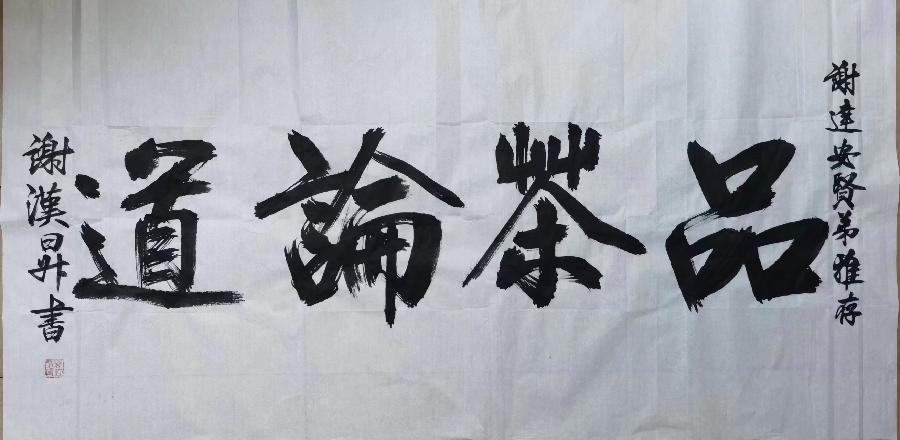 謝達安賢弟雅存
品茶論道
謝漢昇書